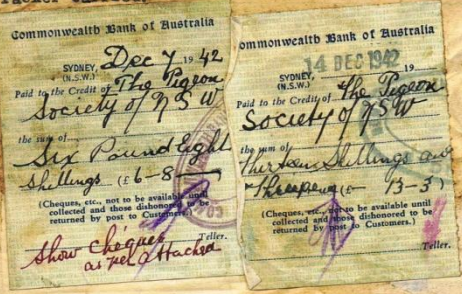 Commonwealth Bank of Australia
SYDNEY, Dec 7 1942
(N.S.W.)
Paid to the Credit of The Pigeon
Society of NSW
the sum of
Six Pound Eight
Shillings (£6-8-
(Cheques, etc., not to be available until
collected and those dishonored to be
returned by post to Customers.)
Teller.
Show cheques
as per attached
ommonwealth Bank of Australia
SYDNEY, 14 DEC 1942 19
(N.S.W.)
Paid to the Credit of The Pigeon
Society of NSW
the sum of
Thirteen Shillings and
Threepence (£ - 13-3)
(Cheques, etc., not to be available until
collected and those dishonored to be
returned by post to Customers.)
Teller.